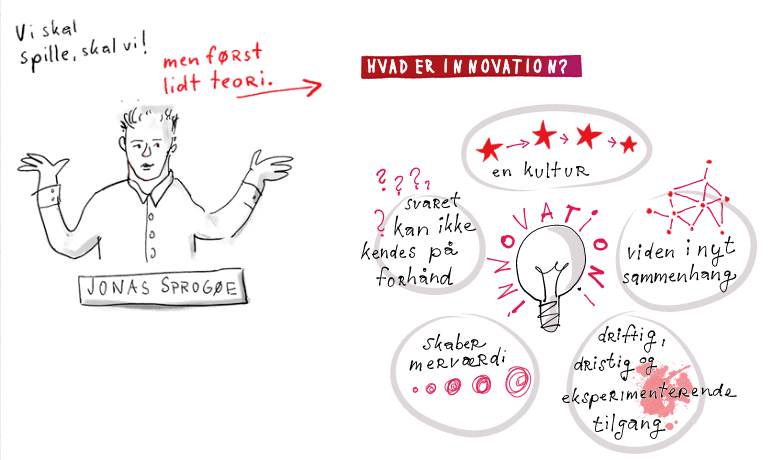 Vi skal
spille, skal vi!
men først
lidt teori.
JONAS SPROGØE
HVAD ER INNOVATION?
en kultur
????
?
svaret
kan ikke
kendes på
forhånd
INNOVATION!
viden i nyt
sammenhang
skaber
merværdi
driftig,
dristig og
eksperimenterende
tilgang